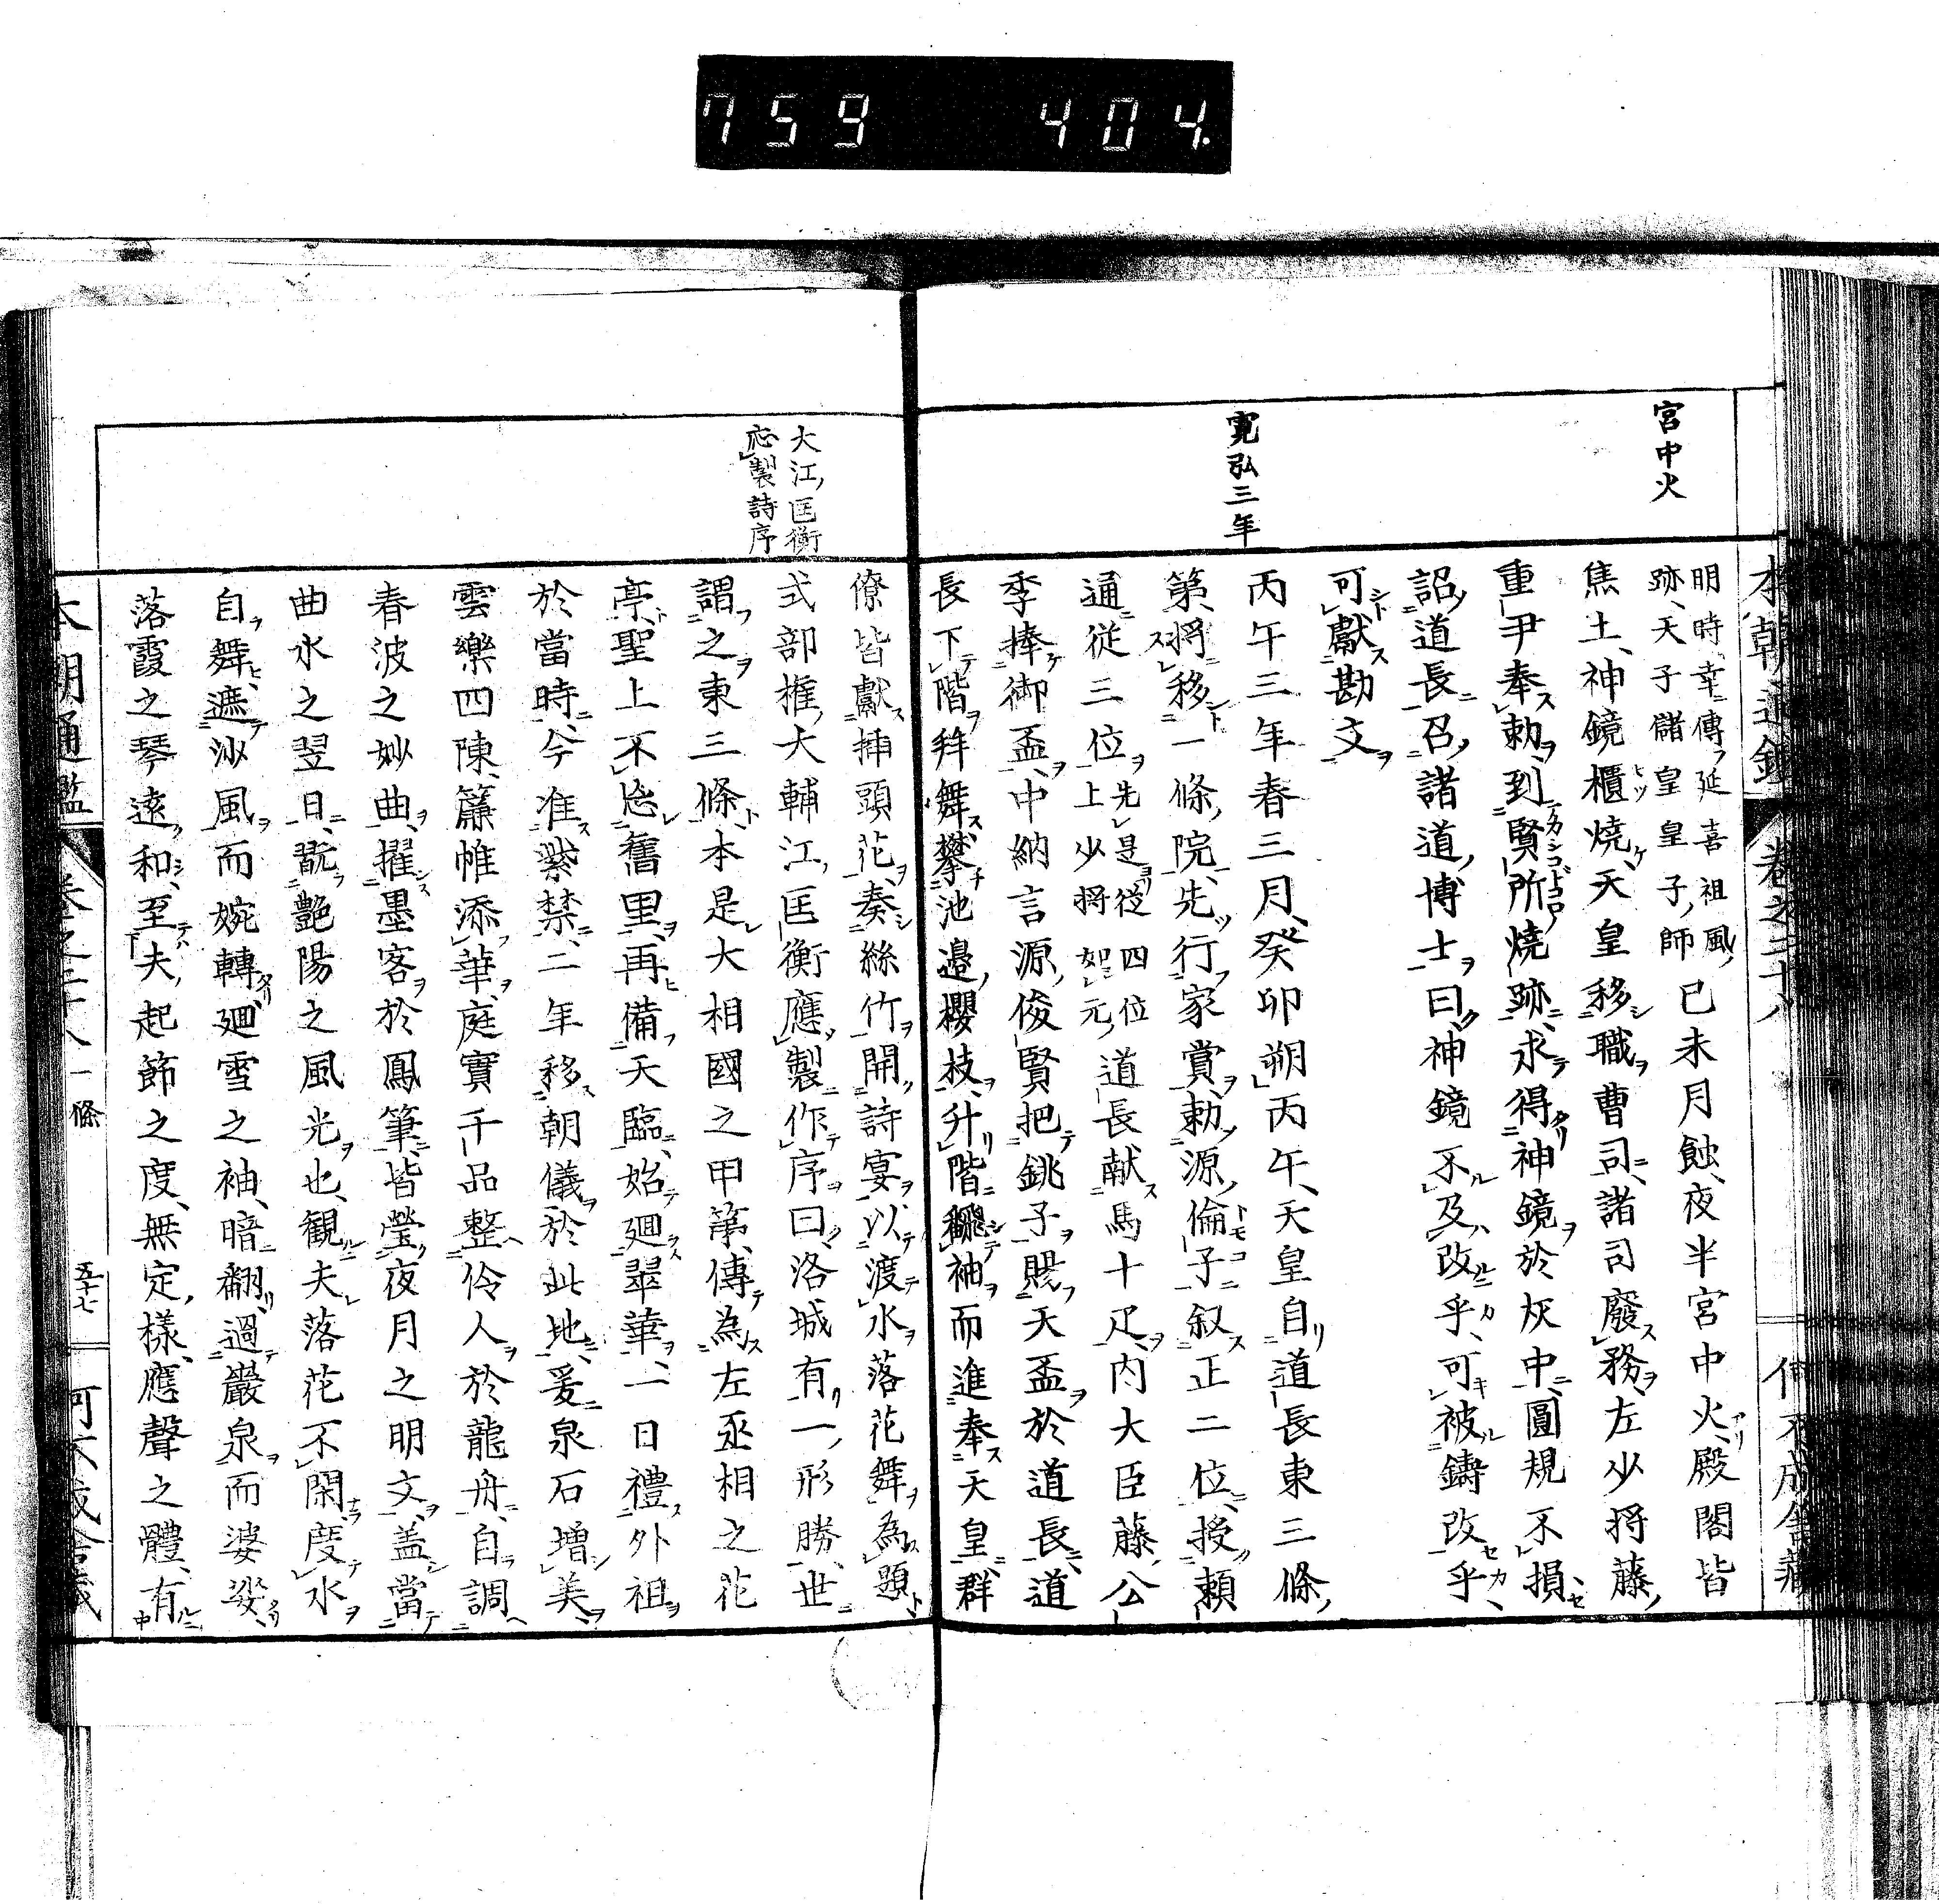 759 404.
宮中火
寛弘三年
大江匡衡
応製詩序
本朝通鑑 卷之二十八
明時幸傳延喜祖風
跡天子儲皇皇子師
已未月蝕夜半宮中火殿閣皆
焦土神鏡櫃燒天皇移職曹司諸司廢務左少將藤
重尹奉勅到賢所燒跡求得神鏡於灰中圓規不損
詔道長召諸道博士曰神鏡不及改乎可被鑄改乎
可獻勘文
丙午三年春三月癸卯朔丙午天皇自道長東三條
第將移一條院先行家賞勅源倫子叙正二位授賴
通從三位先是從四位
上少將如元道長献馬十疋内大臣藤公
季捧御盃中納言源俊賢把銚子賜天盃於道長道
長下階拜舞攀池邉櫻枝升階飜袖而進奉天皇群
僚皆獻挿頭花奏絲竹開詩宴以渡水落花舞為題
式部權大輔江匡衡應製作序曰洛城有一形勝世
謂之東三條本是大相國之甲第傳為左丞相之花
亭聖上不忘舊里再備天臨始廻翠華一日禮外祖
於當時今准紫禁二年移朝儀於此地爰泉石增美
雲樂四陳簾帷添華庭實千品整伶人於龍舟自調
春波之妙曲擢墨客於鳳筆皆瑩夜月之明文盖當
曲水之翌日翫艶陽之風光也観夫落花不閑度水
自舞遮沙風而婉轉廻雪之袖暗翻過巖泉而婆娑
落霞之琴遠和至夫起節之度無定樣應聲之體有
本朝通鑑 卷之二十八 一條 五十七